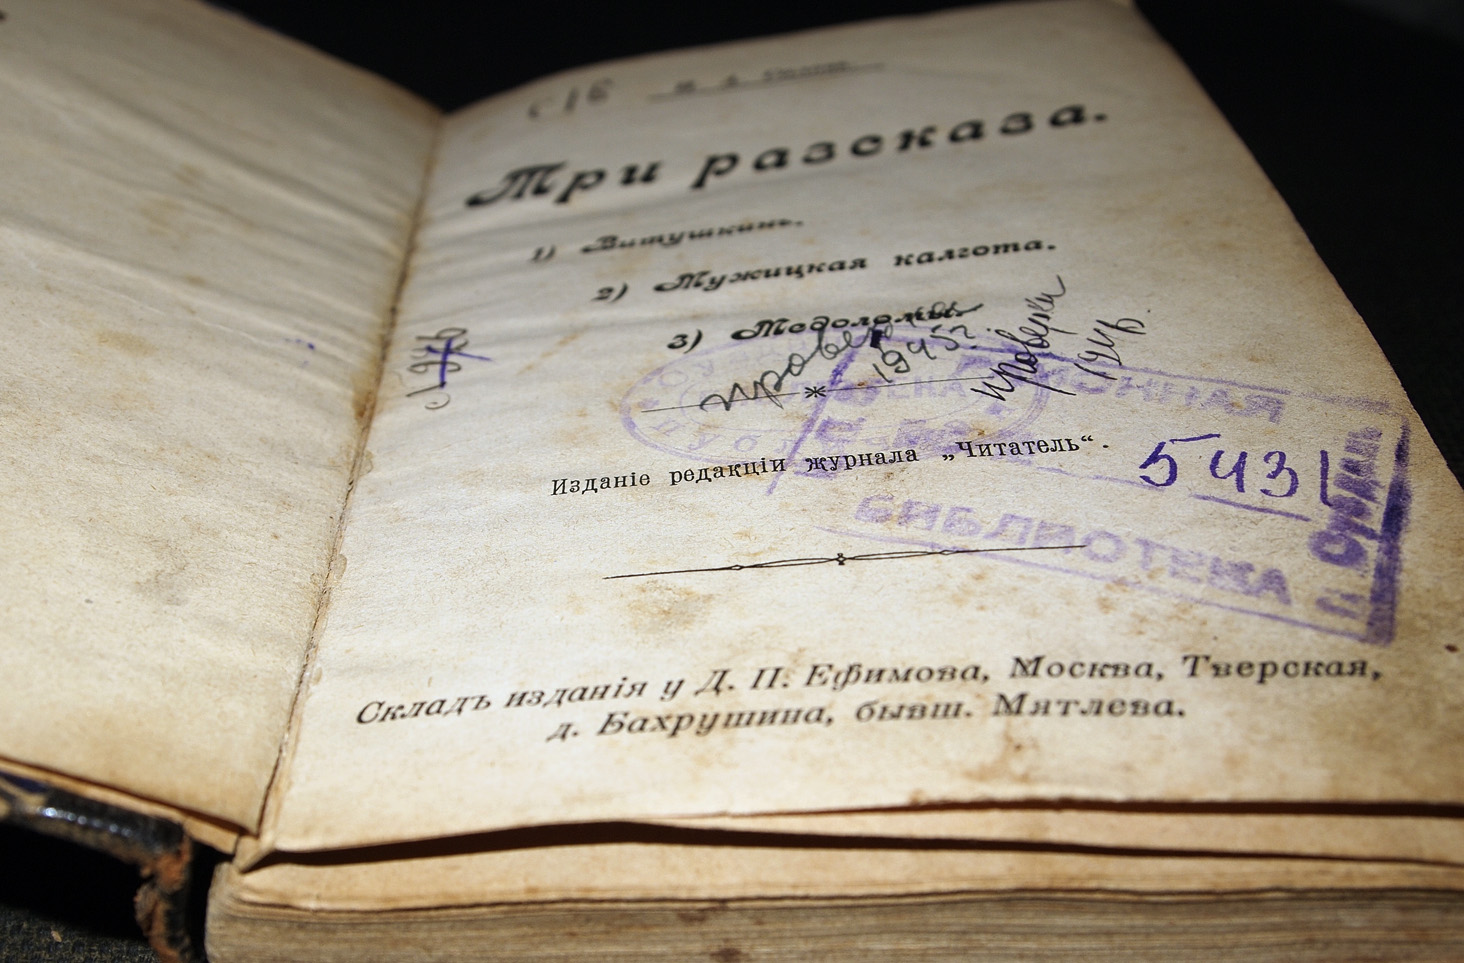 Три разсказа.
1) Витушкинъ.
2) Мужицкая калгота.
3) Медоломы.
проверено
1945г.
проверки
1946
*
Изданіе редакціи журнала „Читатель“.
5431
БИБЛИОТЕКА
Складъ изданія у Д. П. Ефимова, Москва, Тверская,
д. Бахрушина, бывш. Мятлева.